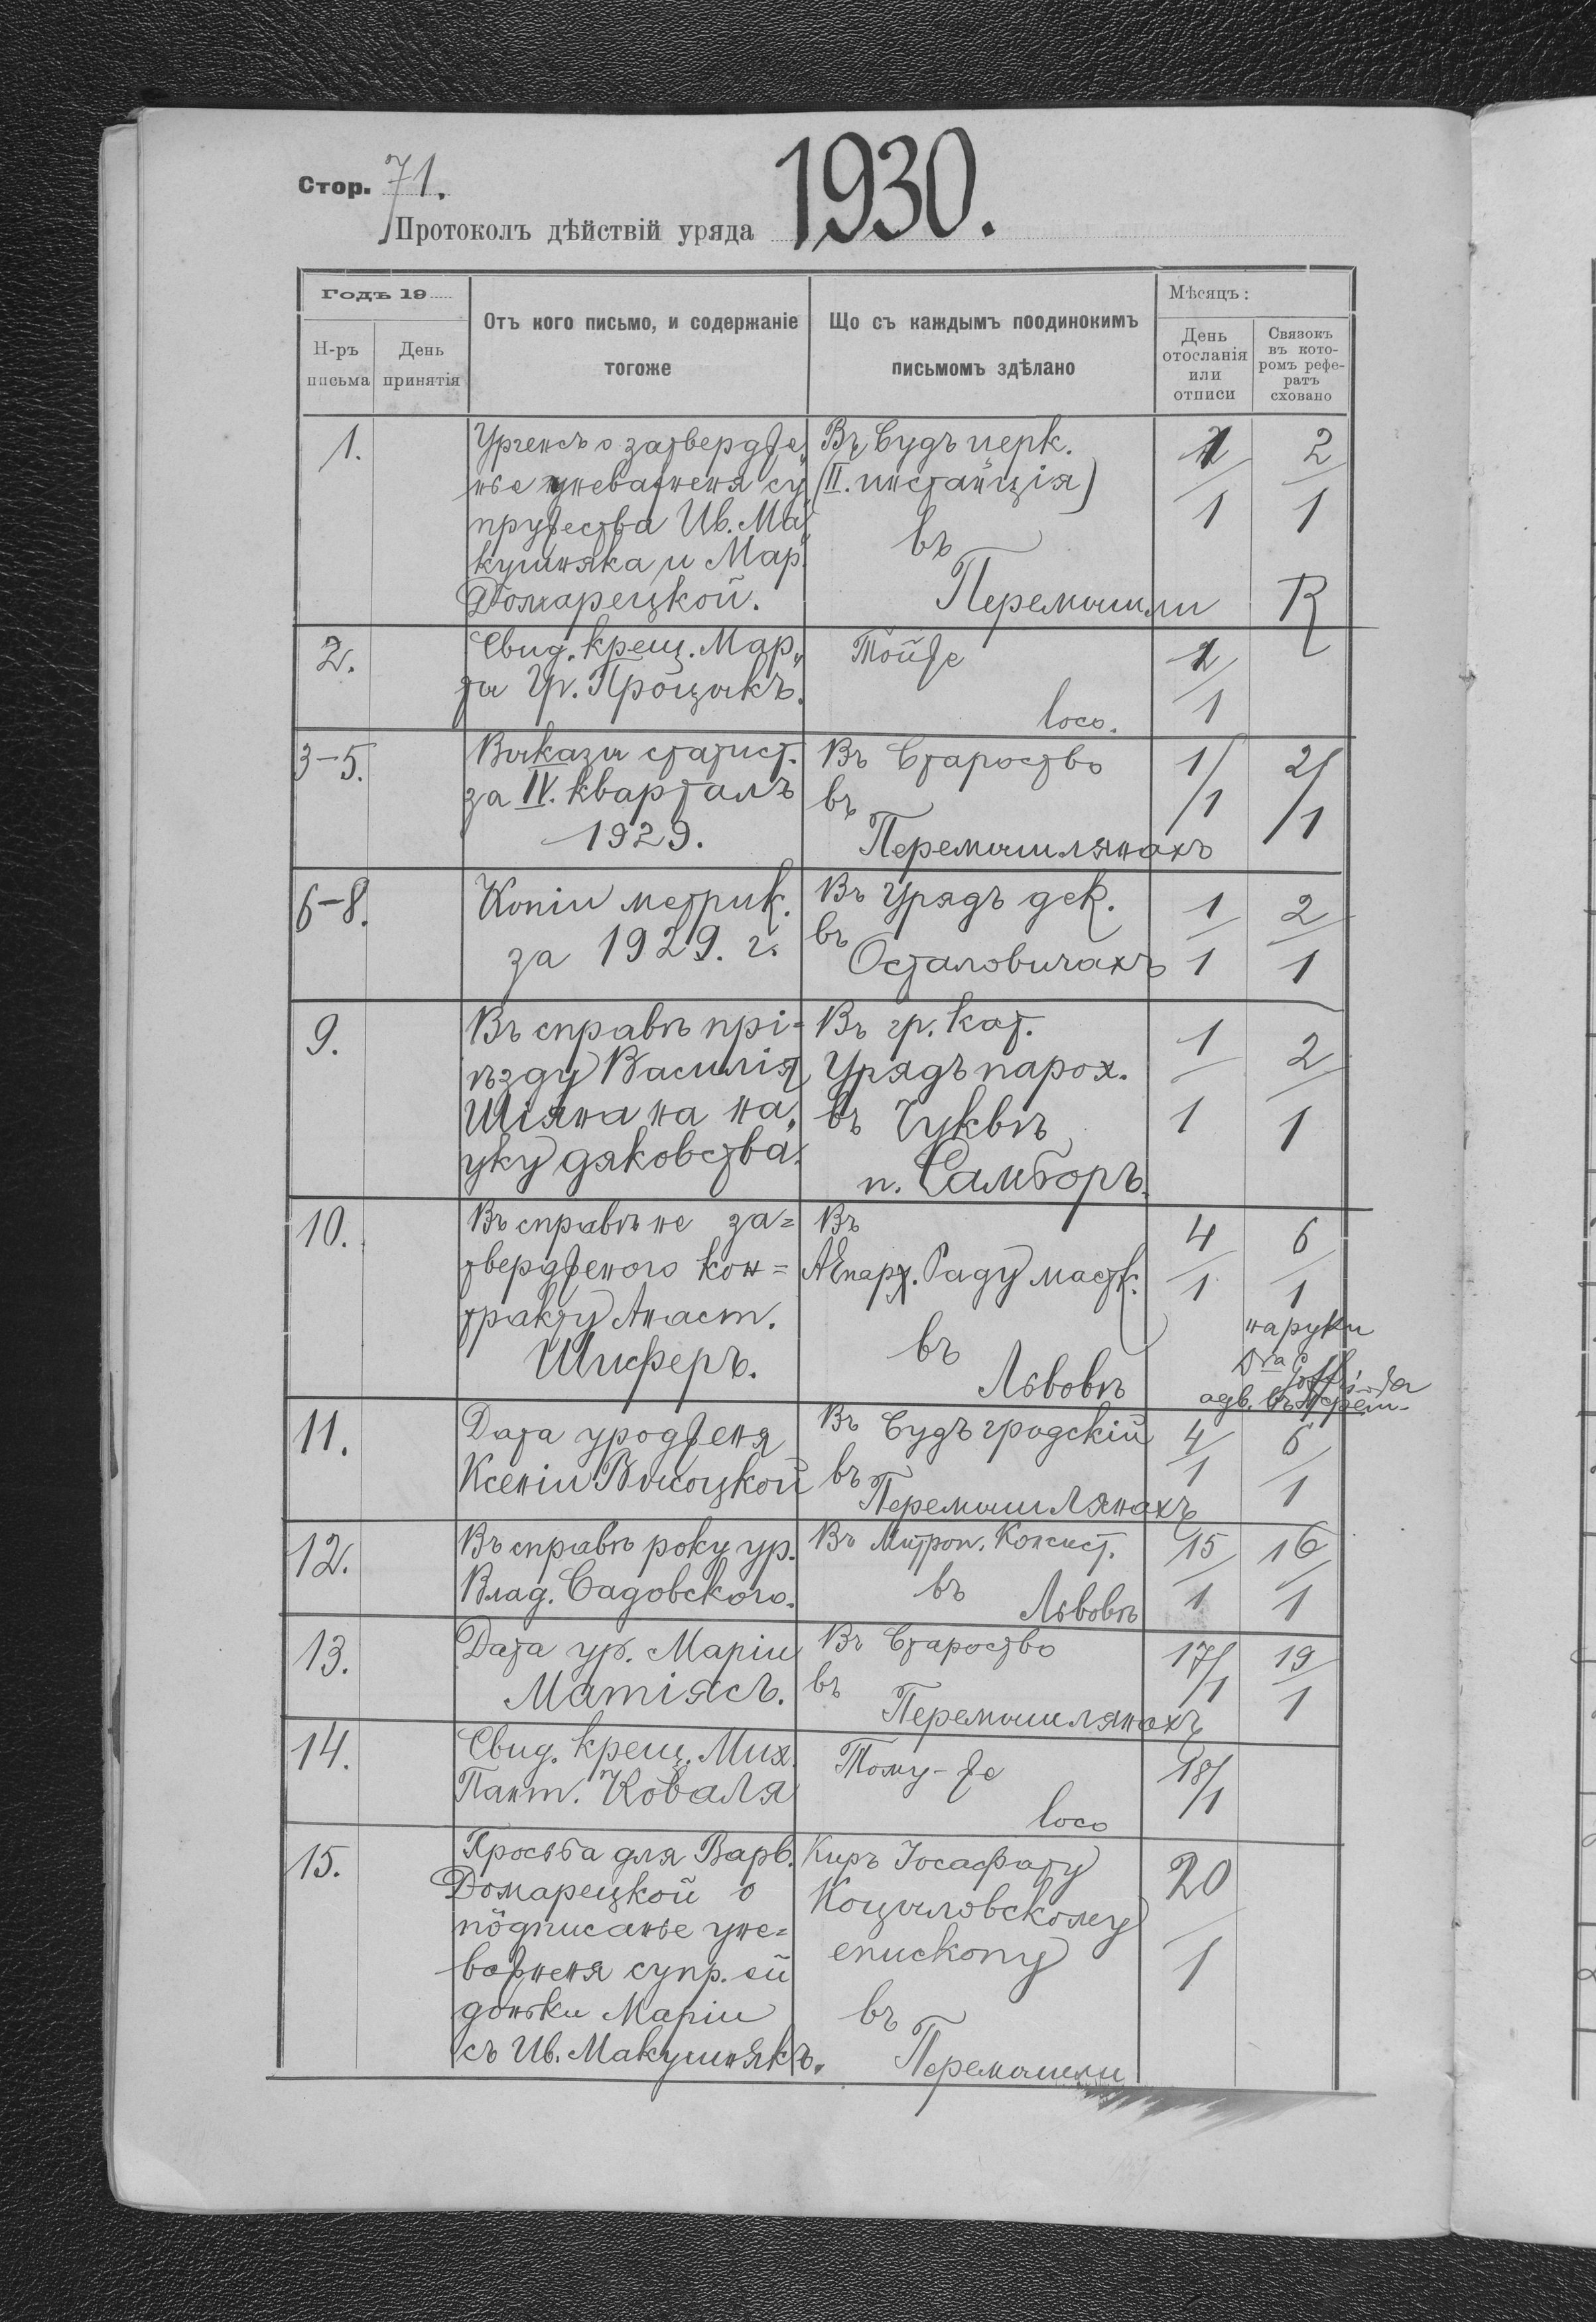 Стор. 71.
1930.
Протоколъ дѣйствій уряда
Годъ 19
Н-ръ письма
День принятія
Отъ кого письмо, и содержаніе тогоже
Що съ каждымъ поодинокимъ письмомъ здѣлано
Мѣсяцъ:
День отосланія или отписи
Связокъ въ кото-ромъ рефе-ратъ сховано
1. Ургенсъ о затвердже„ Въ Судъ церк. 1 2
нье уневажненя су„ (II. инстанція) 1 1
пружества Ив. Ма„ въ
кушняка и Мар. Перемышли R
Домарецкой.
2. Свид. крещ. Мар„ Тойже 1
та Гр. Процыкъ. loco. 1
3-5. Выказы статист. Въ Староство 1/ 2/
за IV. кварталъ въ /1 /1
1929. Перемышлянахъ
6-8. Копіи метрик. Въ Урядъ дек. 1 2
за 1929. г. въ Осталовичахъ 1 1
9. Въ справѣ прі- Въ гр. кат. 1 2
ѣзду Василія Урядъ парох.
Шіяна на на„ въ Чуквѣ 1 1
уку дяковства. п. Самборъ.
10. Въ справѣ не за= Въ 4 6
твердженого кон= АЕпарх. Раду мастк. 1 1
тракту Анаст. на руки
Шиферъ. въ Львовѣ Dra
адв.
11. Дата уродженя Въ Судъ градскій 4 6
Ксеніи Высоцкой въ Перемышлянахъ 1 1
12. Въ справѣ року ур. Въ Митроп. Консист. 15 16
Влад. Садовского. въ Львовѣ 1 1
13. Дата ур. Маріи Въ Староство 17/ 19
Матіясъ. въ Перемышлянахъ /1 1
14. Свид. крещ. Мих. Тому-же 18/
Пант. Коваля loco /1
15. Просьба для Варв. Киръ Іосафату 20
Домарецкой о Коцыловскому
пôдписанье уне= епископу 1
важненя супр. ей
доньки Маріи въ
съ Ив. Макушнякъ. Перемышли